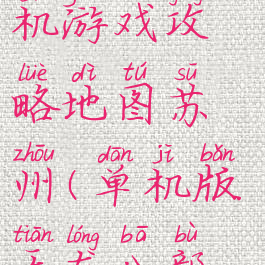 机游戏攻
lüè dì tú sū
略地图苏
zhōu dān jī bǎn
州(单机版
tiān lóng bā bù